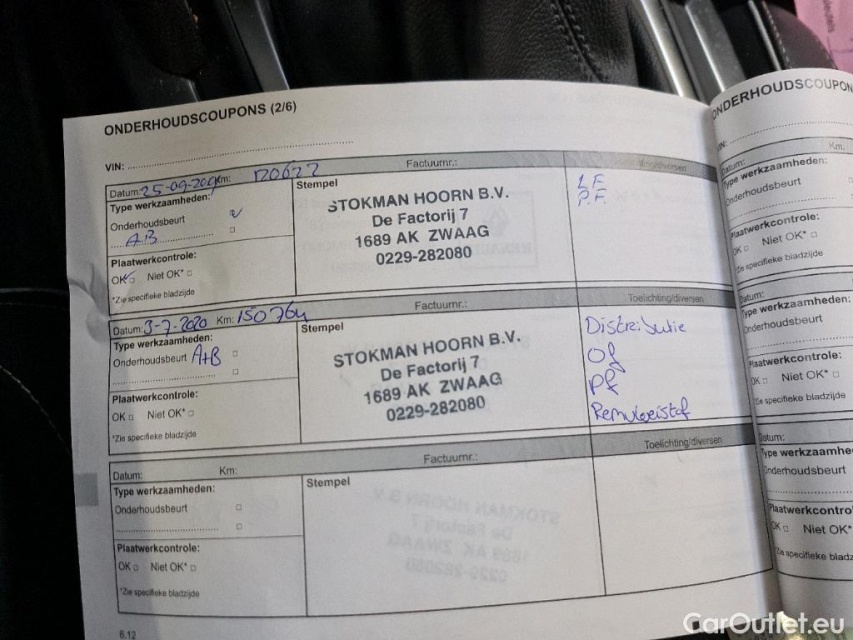 ONDERHOUDSCOUPONS (2/6)
VIN:
Datum: 25-09- Km: 120622 Factuurnr.:
Type werkzaamheden:
Onderhoudsbeurt
A B
Plaatwerkcontrole:
OK Niet OK*
*Zie specifieke bladzijde
Stempel
STOKMAN HOORN B.V.
De Factorij 7
1689 AK ZWAAG
0229-282080
P.F
Datum: 3-7-2020 Km: 150764 Factuurnr.: Toelichting/diversen
Type werkzaamheden:
Onderhoudsbeurt A+B
Plaatwerkcontrole:
OK Niet OK*
*Zie specifieke bladzijde
Stempel
STOKMAN HOORN B.V.
De Factorij 7
1689 AK ZWAAG
0229-282080
Distributie
Of
Pf
Remvloeistof
Datum: Km: Factuurnr.: Toelichting/diversen
Type werkzaamheden:
Onderhoudsbeurt
Plaatwerkcontrole:
OK Niet OK*
*Zie specifieke bladzijde
Stempel
6.12
ONDERHOUDSCOUPON
VIN:
Datum: Km.
Type werkzaamheden:
Onderhoudsbeurt
Plaatwerkcontrole:
OK Niet OK*
*Zie specifieke bladzijde
Datum:
Type werkzaamheden:
Onderhoudsbeurt
Plaatwerkcontrole:
OK Niet OK*
*Zie specifieke bladzijde
Datum:
Type werkzaamhe
Onderhoudsbeurt
Plaatwerkcontro
OK Niet OK*
*Zie specifieke bladz
CarOutlet.eu